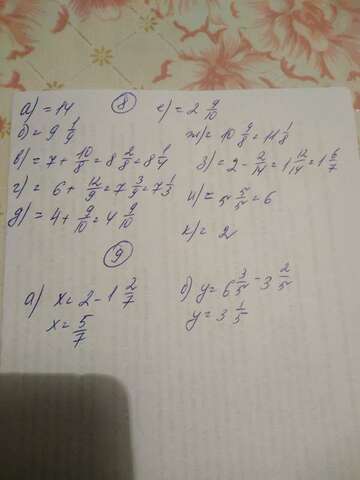 8
а) = 14
б) = 9 1/9
в) = 7 + 10/8 = 8 2/8 = 8 1/4
г) = 6 + 12/9 = 7 3/9 = 7 1/3
д) = 4 + 9/10 = 4 9/10
е) = 2 9/10
з) = 2 - 2/14 = 1 12/14 = 1 6/7
и) = 5 5/5 = 6
к) = 2
9
а) x = 2 - 1 2/7
x = 5/7
б) y = 6 3/5 - 3 2/5
y = 3 1/5